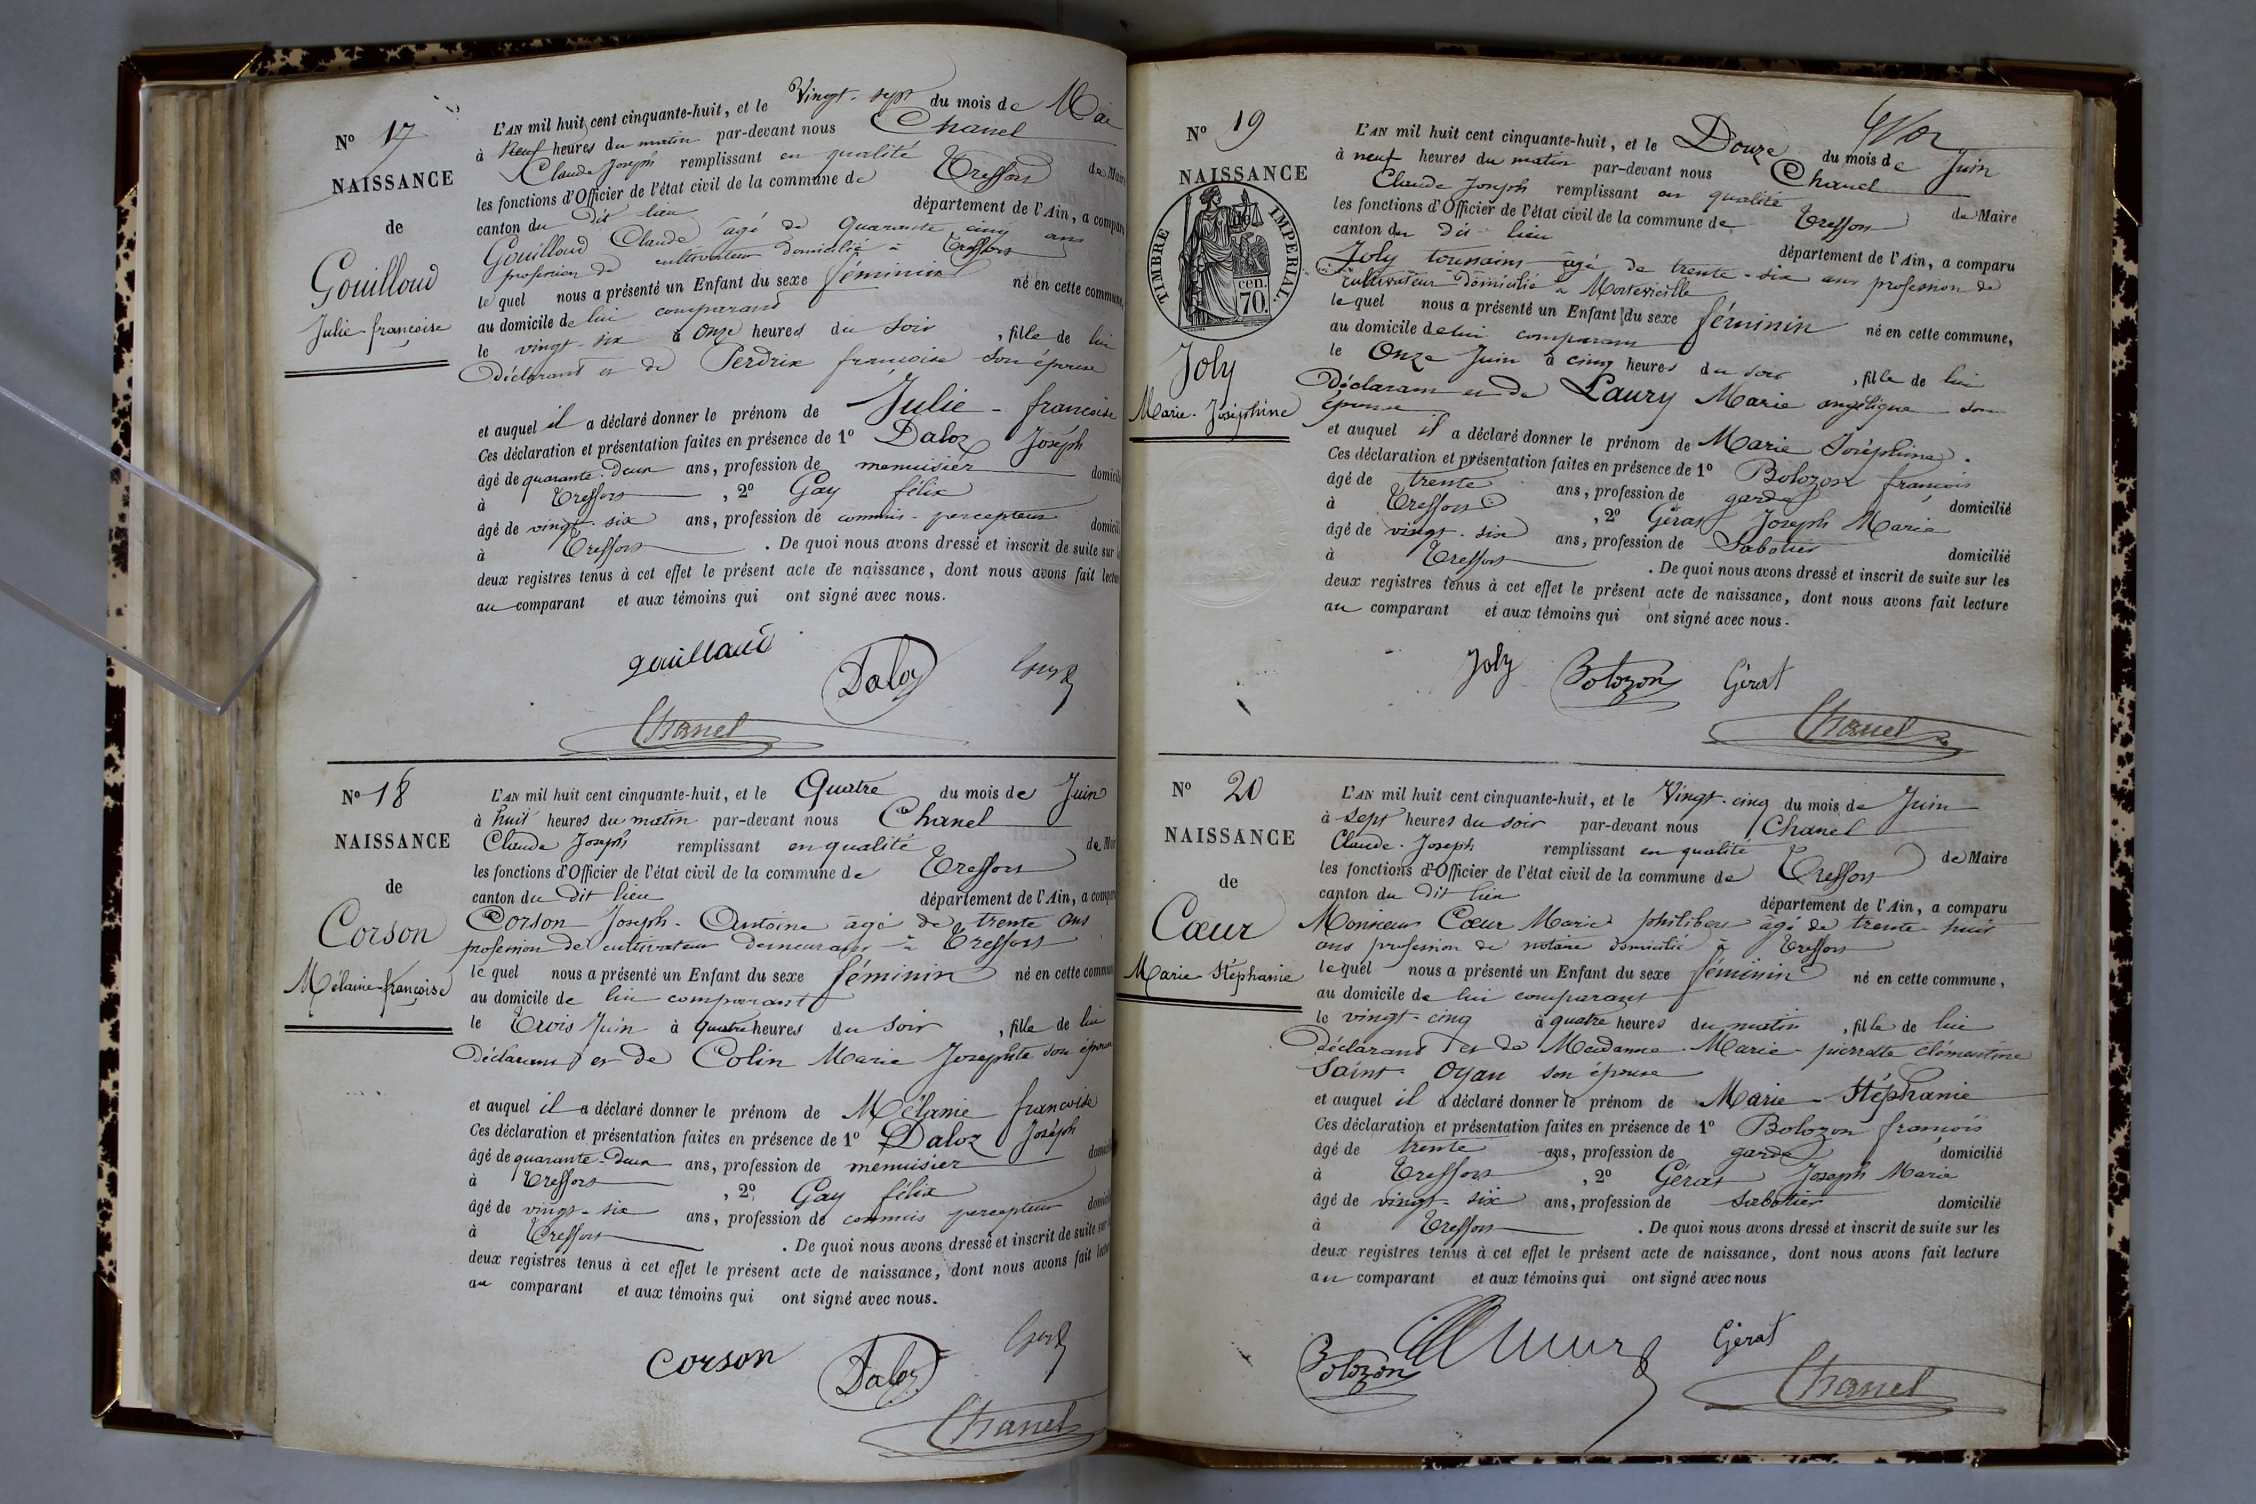 N° 17
NAISSANCE
de
Gouilloud
Julie françoise
L'AN mil huit cent cinquante-huit, et le Vingt-sept du mois de Mai
à Neuf heures du matin par-devant nous Chanel
Claude Joseph remplissant en qualité de Maire
les fonctions d'Officier de l'état civil de la commune de Treffort
canton du dit lieu département de l'Ain, a comparu
Gouilloud Claude âgé de Quarante cinq ans
profession de cultivateur domicilié à Treffort
lequel nous a présenté un Enfant du sexe féminin né en cette commune,
au domicile de lui comparant
le vingt-six à Onze heures du soir, fille de lui
déclarant et de Perdrix françoise son épouse
et auquel il a déclaré donner le prénom de Julie-françoise
Ces déclaration et présentation faites en présence de 1° Daloz Joséph
âgé de quarante-Deux ans, profession de menuisier domicilié
à Treffort, 2° Gay félix
âgé de vingt-six ans, profession de commis-percepteur domicilié
à Treffort. De quoi nous avons dressé et inscrit de suite sur les
deux registres tenus à cet effet le présent acte de naissance, dont nous avons fait lecture
au comparant et aux témoins qui ont signé avec nous.
gouilloud
Daloz
Gay
Chanel
N° 18
NAISSANCE
de
Corson
Mélanie françoise
L'AN mil huit cent cinquante-huit, et le Quatre du mois de Juin
à huit heures du matin par-devant nous Chanel
Claude Joseph remplissant en qualité de Maire
les fonctions d'Officier de l'état civil de la commune de Treffort
canton du dit lieu département de l'Ain, a comparu
Corson Joseph-Antoine âgé de trente ans
profession de cultivateur demeurant à Treffort
lequel nous a présenté un Enfant du sexe féminin né en cette commune
au domicile de lui comparant
le Trois Juin à quatre heures du soir, fille de lui
déclarant et de Colin Marie Josephte son épouse
et auquel il a déclaré donner le prénom de Mélanie françoise
Ces déclaration et présentation faites en présence de 1° Daloz Joséph
âgé de quarante-Deux ans, profession de menuisier domicilié
à Treffort, 2° Gay félix
âgé de vingt-six ans, profession de commis percepteur domicilié
à Treffort. De quoi nous avons dressé et inscrit de suite sur les
deux registres tenus à cet effet le présent acte de naissance, dont nous avons fait lecture
au comparant et aux témoins qui ont signé avec nous.
corson
Daloz
Gay
Chanel
N° 19
NAISSANCE
TIMBRE IMPÉRIAL.
70. cen.
Joly
Marie-Joséphine
L'AN mil huit cent cinquante-huit, et le Douze du mois de Juin
à neuf heures du matin par-devant nous Chanel
Claude Joseph remplissant en qualité de Maire
les fonctions d'Officier de l'état civil de la commune de Treffort
canton du dit lieu département de l'Ain, a comparu
Joly toussaint âgé de trente-six ans profession de
cultivateur domicilié à Montevieille
lequel nous a présenté un Enfant du sexe féminin né en cette commune,
au domicile de lui comparant
le Onze Juin à cinq heures du soir, fille de lui
déclarant et de Laury Marie angélique son
épouse
et auquel il a déclaré donner le prénom de Marie Joséphine.
Ces déclaration et présentation faites en présence de 1° Bolozon françois
âgé de trente ans, profession de garde domicilié
à Treffort, 2° Gérat Joseph Marie
âgé de vingt-six ans, profession de Sabotier domicilié
à Treffort. De quoi nous avons dressé et inscrit de suite sur les
deux registres tenus à cet effet le présent acte de naissance, dont nous avons fait lecture
au comparant et aux témoins qui ont signé avec nous.
Joly
Bolozon
Gérat
Chanel
N° 20
NAISSANCE
de
Cœur
Marie Stéphanie
L'AN mil huit cent cinquante-huit, et le Vingt-cinq du mois de Juin
à sept heures du soir par-devant nous Chanel
Claude-Joseph remplissant en qualité de Maire
les fonctions d'Officier de l'état civil de la commune de Treffort
canton du dit lieu département de l'Ain, a comparu
Monsieur Cœur Marie philibert âgé de trente huit
ans profession de notaire domicilié à Treffort
lequel nous a présenté un Enfant du sexe féminin né en cette commune,
au domicile de lui comparant
le vingt-cinq à quatre heures du matin, fille de lui
déclarant et de Madame Marie-pierrette clémentine
Saint-Oyan son épouse
et auquel il a déclaré donner le prénom de Marie-Stéphanie
Ces déclaration et présentation faites en présence de 1° Bolozon françois
âgé de trente ans, profession de garde domicilié
à Treffort, 2° Gérat Joseph Marie
âgé de vingt-six ans, profession de sabotier domicilié
à Treffort. De quoi nous avons dressé et inscrit de suite sur les
deux registres tenus à cet effet le présent acte de naissance, dont nous avons fait lecture
au comparant et aux témoins qui ont signé avec nous
Bolozon
Gérat
Chanel